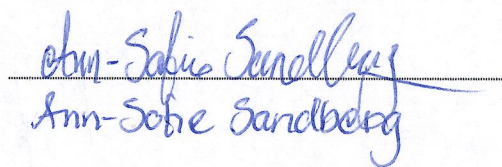 Ann-Sofie Sandberg
Ann-Sofie Sandberg